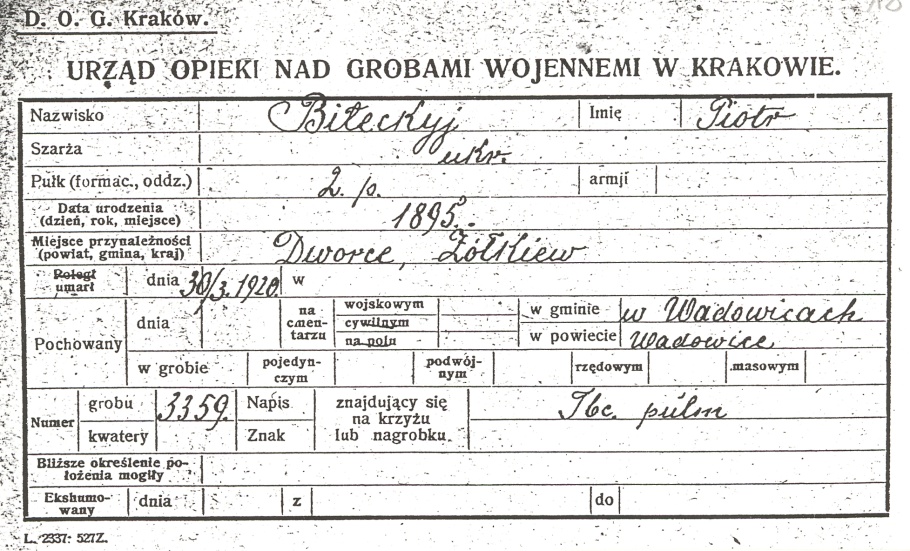 D. O. G. Kraków.
URZĄD OPIEKI NAD GROBAMI WOJENNEMI W KRAKOWIE.
Nazwisko Biłeckyj Imię Piotr
Szarża ukr.
Pułk (formac., oddz.) 2. p. armji
Data urodzenia
(dzień, rok, miejsce) 1895.
Miejsce przynależności
(powiat, gmina, kraj) Dworce, Żółkiew
Poległ
umarł dnia 30/3. 1920. w
Pochowany dnia na cmen-tarzu wojskowym cywilnym na polu w gminie w Wadowicach
w powiecie Wadowice
w grobie pojedyn-czym podwój-nym rzędowym masowym
Numer grobu 3359. Napis znajdujący się na krzyżu lub nagrobku. Tbc. pulm
kwatery Znak
Bliższe określenie po-
łożenia mogiły
Ekshumo-
wany dnia z do
L. 2337: 527Z.